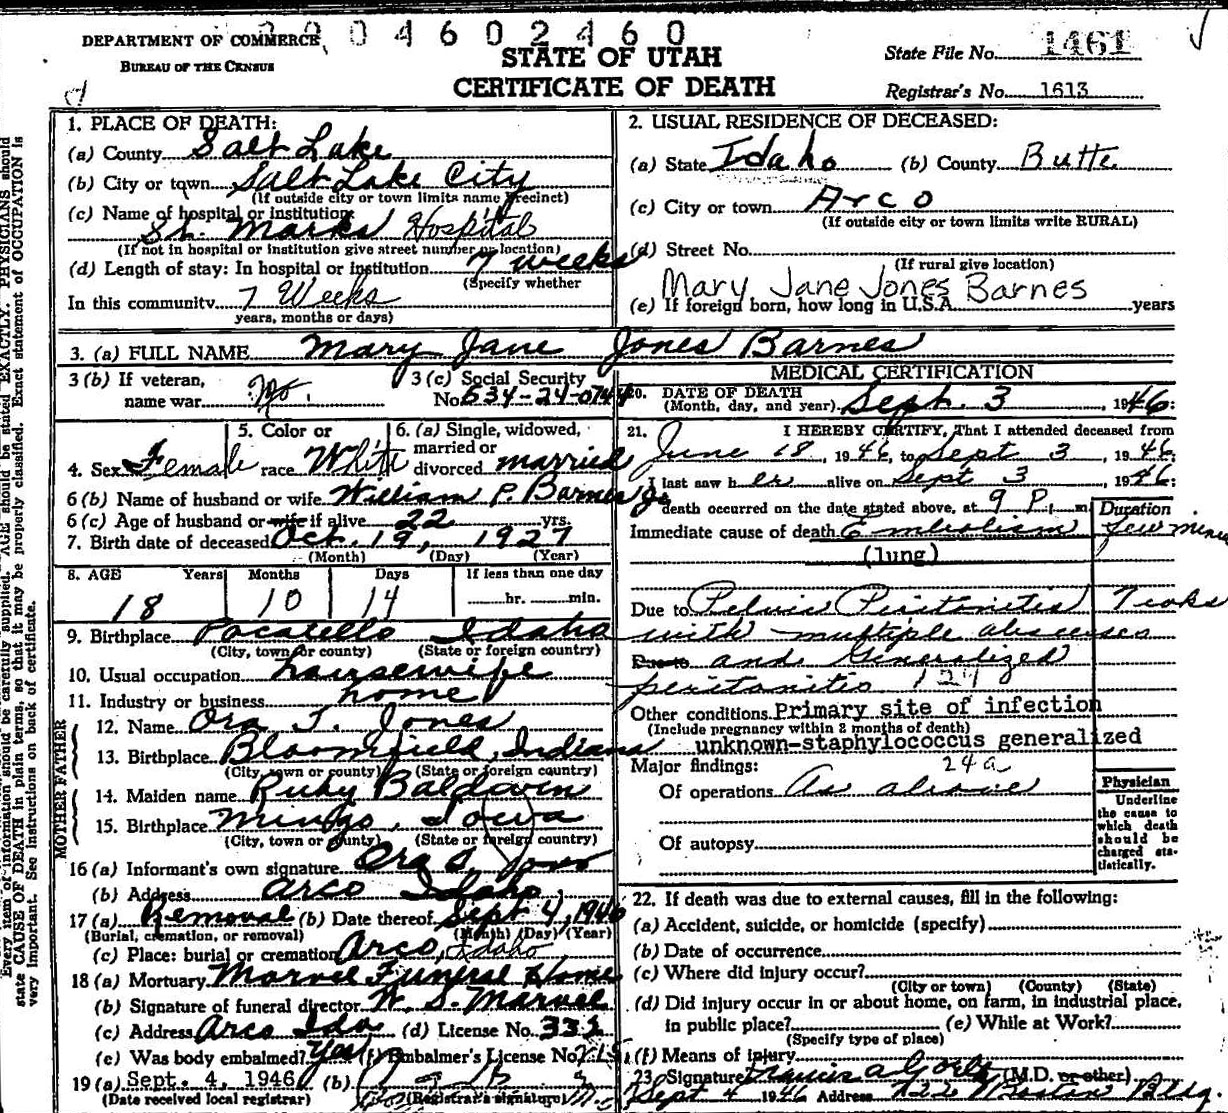 DEPARTMENT OF COMMERCE
BUREAU OF THE CENSUS
0 0 4 6 0 2 4 6 0
STATE OF UTAH
CERTIFICATE OF DEATH
State File No. 1461
Registrar's No. 1613
Every item of information should be carefully supplied. AGE should be stated EXACTLY. PHYSICIANS should
state CAUSE OF DEATH in plain terms, so that it may be properly classified. Exact statement of OCCUPATION is
very important. See Instructions on back of certificate.
1. PLACE OF DEATH:
(a) County Salt Lake
(b) City or town Salt Lake City
(If outside city or town limits name Precinct)
(c) Name of hospital or institution:
St. Marks Hospital
(If not in hospital or institution give street number or location)
(d) Length of stay: In hospital or institution 7 weeks
(Specify whether
In this community 7 Weeks
years, months or days)
2. USUAL RESIDENCE OF DECEASED:
(a) State Idaho (b) County Butte
(c) City or town Arco
(If outside city or town limits write RURAL)
(d) Street No.
(If rural give location)
Mary Jane Jones Barnes
(e) If foreign born, how long in U.S.A. years
3. (a) FULL NAME Mary Jane Jones Barnes
3 (b) If veteran, name war No.
3 (c) Social Security
No. 534-24-0744
4. Sex Female
5. Color or race White
6. (a) Single, widowed, married or divorced married
6 (b) Name of husband or wife William P. Barnes Jr
6 (c) Age of husband or wife if alive 22 yrs.
7. Birth date of deceased Oct. 19, 1927
(Month) (Day) (Year)
8. AGE Years Months Days If less than one day
18 10 14 hr. min.
9. Birthplace Pocatello Idaho
(City, town or county) (State or foreign country)
10. Usual occupation housewife
11. Industry or business home
FATHER
12. Name Ora T. Jones
13. Birthplace Bloomfield, Indiana
(City, town or county) (State or foreign country)
MOTHER
14. Maiden name Ruby Baldwin
15. Birthplace Mingo, Iowa
(City, town or county) (State or foreign country)
16 (a) Informant's own signature Ora Jones
(b) Address Arco Idaho
17 (a) Removal (b) Date thereof Sept 4, 1946
(Burial, cremation, or removal) (Month) (Day) (Year)
(c) Place: burial or cremation Arco, Idaho
18 (a) Mortuary Marvel Funeral Home
(b) Signature of funeral director W. S. Marvel
(c) Address Arco Ida (d) License No. 332
(e) Was body embalmed? Yes (f) Embalmer's License No.
19 (a) Sept. 4, 1946 (b)
(Date received local registrar) (Registrar's signature)
MEDICAL CERTIFICATION
20. DATE OF DEATH
(Month, day, and year) Sept. 3, 1946:
21. I HEREBY CERTIFY, That I attended deceased from
June 18, 1946, to Sept 3, 1946;
I last saw her alive on Sept 3, 1946;
death occurred on the date stated above, at 9 P. m.
Duration
Immediate cause of death Embolism few mins
(lung)
Due to Pelvic Peritonitis 7 wks
with multiple abscesses
Due to and Generalized
peritonitis 129
Other conditions Primary site of infection
(Include pregnancy within 3 months of death)
unknown-staphylococcus generalized
Major findings: 24a
Of operations As above
Of autopsy
Physician
Underline the cause to which death should be charged statistically.
22. If death was due to external causes, fill in the following:
(a) Accident, suicide, or homicide (specify)
(b) Date of occurrence
(c) Where did injury occur?
(City or town) (County) (State)
(d) Did injury occur in or about home, on farm, in industrial place,
in public place? (e) While at Work?
(Specify type of place)
(f) Means of injury
23. Signature Francis A Goeltz (M.D. or other)
Sept 4 1946 Address Boston Bldg.